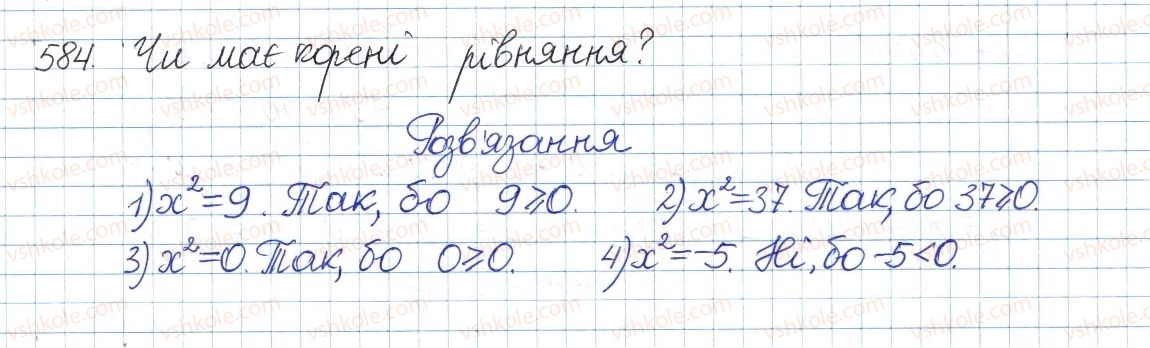 584. Чи має корені рівняння?
Розв'язання
1) x²=9. Так, бо 9⩾0. 2) x²=37. Так, бо 37⩾0.
3) x²=0. Так, бо 0⩾0. 4) x²=-5. Ні, бо -5<0.